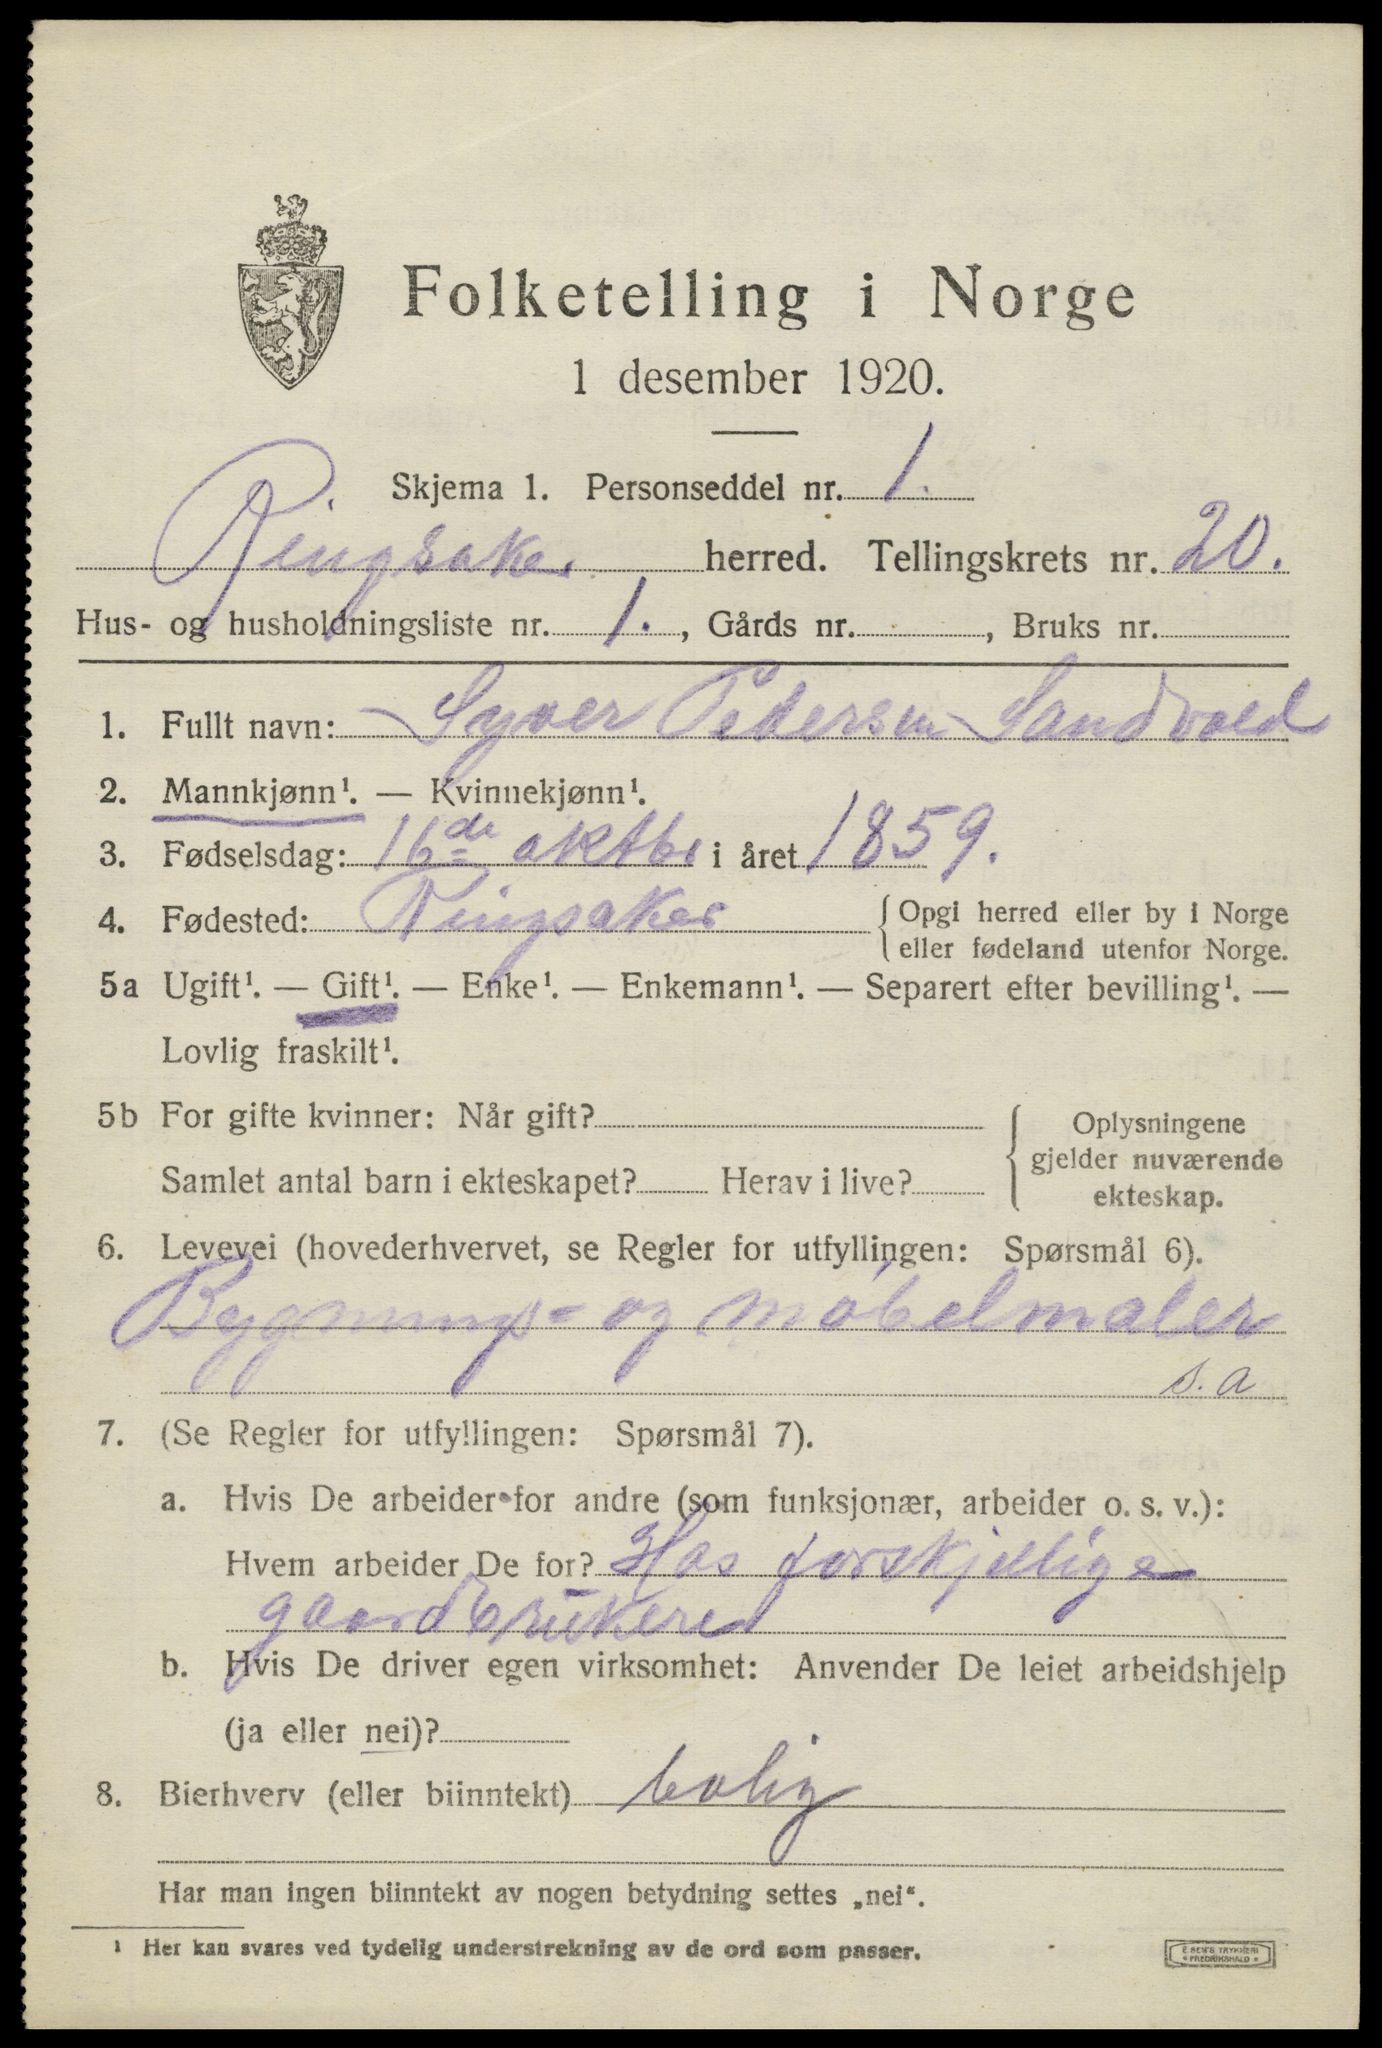 Folketelling i Norge
1 desember 1920.
Skjema 1. Personseddel nr. 1.
Ringsaker herred. Tellingskrets nr. 20.
Hus- og husholdningsliste nr. 1., Gårds nr. , Bruks nr.
1. Fullt navn: Syver Pedersen Sandvold
2. Mannkjønn¹. — Kvinnekjønn¹.
3. Fødselsdag: 16de oktbr i året 1859.
4. Fødested: Ringsaker { Opgi herred eller by i Norge
eller fødeland utenfor Norge.
5a Ugift¹. — Gift¹. — Enke¹. — Enkemann¹. — Separert efter bevilling¹. —
Lovlig fraskilt¹.
5b For gifte kvinner: Når gift? { Oplysningene
gjelder nuværende
Samlet antal barn i ekteskapet? Herav i live?
ekteskap.
6. Levevei (hovederhvervet, se Regler for utfyllingen: Spørsmål 6).
Bygnings- og møbelmaler
s. a
7. (Se Regler for utfyllingen: Spørsmål 7).
a. Hvis De arbeider for andre (som funksjonær, arbeider o. s. v.):
Hvem arbeider De for? Hos forskjellige
gaardbrukere
b. Hvis De driver egen virksomhet: Anvender De leiet arbeidshjelp
(ja eller nei)?
8. Bierhverv (eller biinntekt) bolig
Har man ingen biinntekt av nogen betydning settes „nei“.
¹ Her kan svares ved tydelig understrekning av de ord som passer.
E. SEM'S TRYKKERI
FREDRIKSHALD